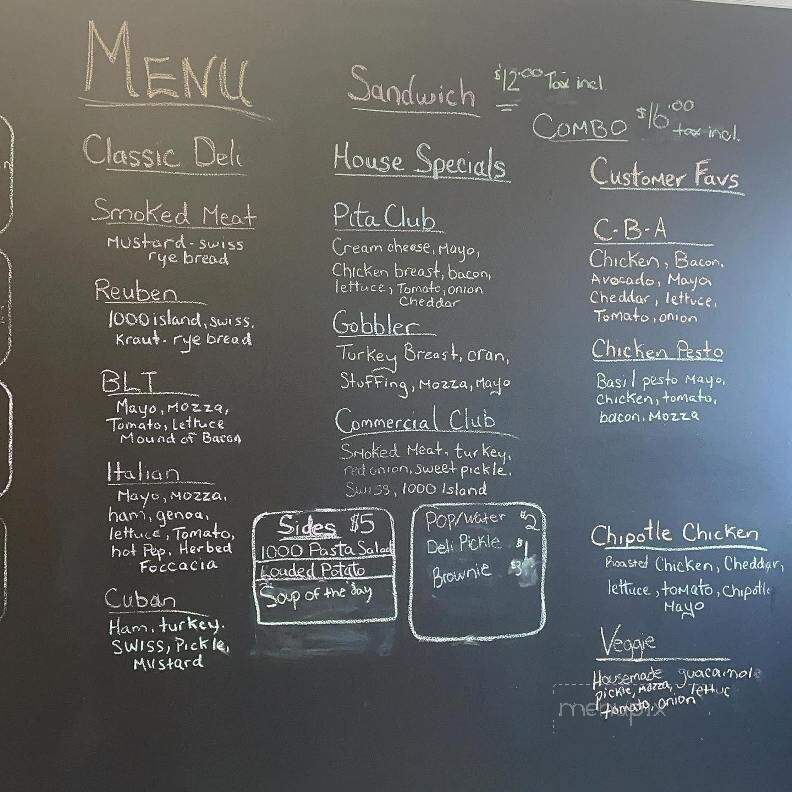 MENU
Sandwich $12.00 Tax incl.
COMBO $16.00 tax-incl.
Classic Deli
Smoked Meat
Mustard - swiss
rye bread
Reuben
1000 island, swiss,
Kraut - rye bread
BLT
Mayo, Mozza,
Tomato, Lettuce
Mound of Bacon
Italian
Mayo, Mozza,
ham, genoa,
lettuce, Tomato,
hot Pep, Herbed
Foccacia
Cuban
Ham, turkey.
SWISS, Pickle,
Mustard
House Specials
Pita Club
Cream cheese, Mayo,
Chicken breast, bacon,
lettuce, Tomato, onion
Cheddar
Gobbler
Turkey Breast, cran,
Stuffing, Mozza, Mayo
Commercial Club
Smoked Meat, turkey,
red onion, sweet pickle,
Swiss, 1000 Island
Sides $5
1000 Pasta Salad
Loaded Potato
Soup of the day
POP/water $2
Deli Pickle $1
Brownie $3
Customer Favs
C-B-A
Chicken, Bacon.
Avocado, Mayo
Cheddar, lettuce,
Tomato, onion
Chicken Pesto
Basil pesto Mayo,
chicken, tomato,
bacon, Mozza
Chipotle Chicken
Roasted Chicken, Cheddar,
lettuce, tomato, Chipotle
Mayo
Veggie
Housemade guacamole
pickle, mozza, lettuc
tomato, onion
menupix